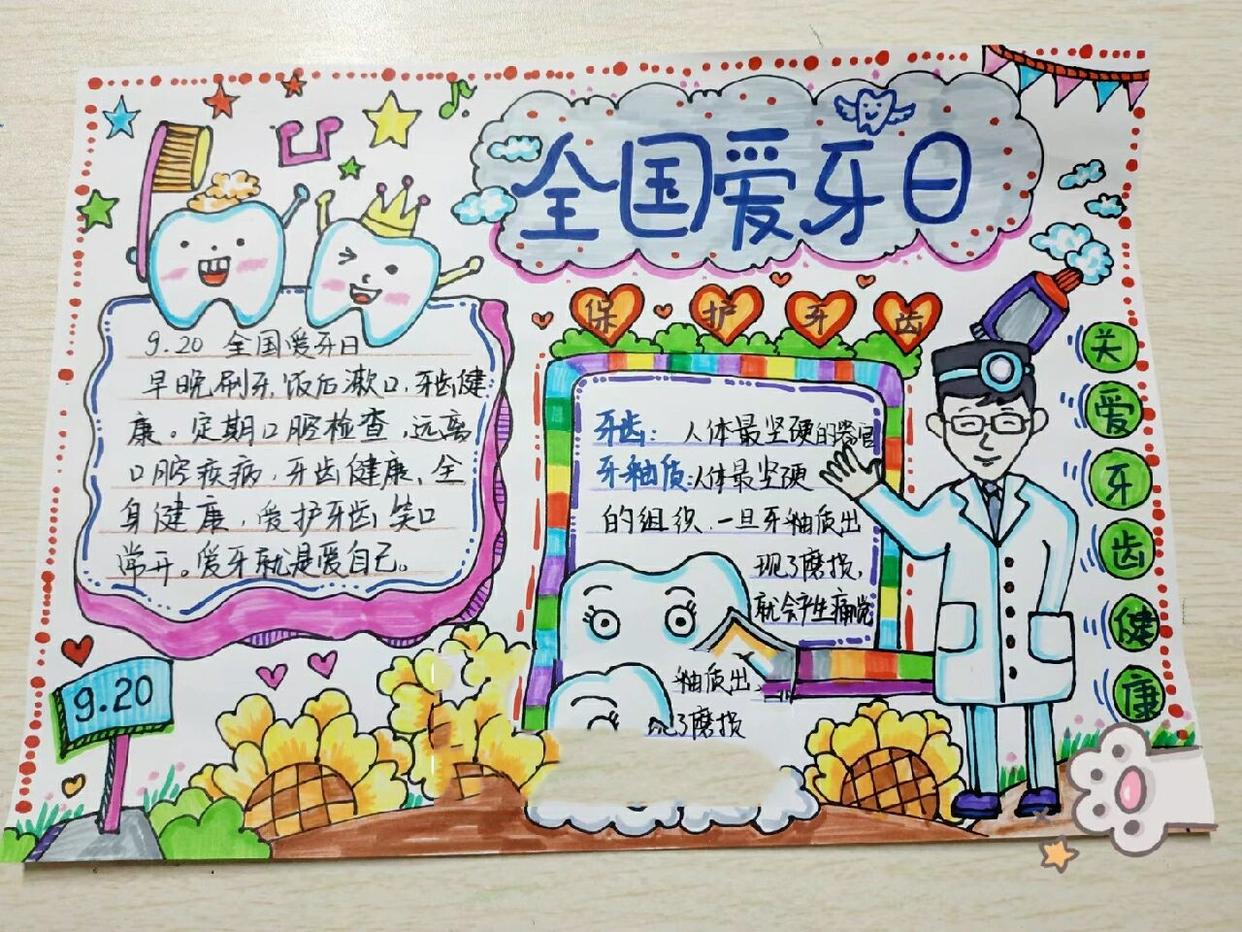 全国爱牙日
保护牙齿
9.20 全国爱牙日
早晚刷牙,饭后漱口,牙齿健
康。定期口腔检查,远离
口腔疾病,牙齿健康、全
身健康,爱护牙齿,笑口
常开。爱牙就是爱自己。
牙齿:人体最坚硬的器官
牙釉质:人体最坚硬
的组织,一旦牙釉质出
现了磨损,
就会产生痛觉
釉质出
现了磨损
关爱牙齿健康
9.20